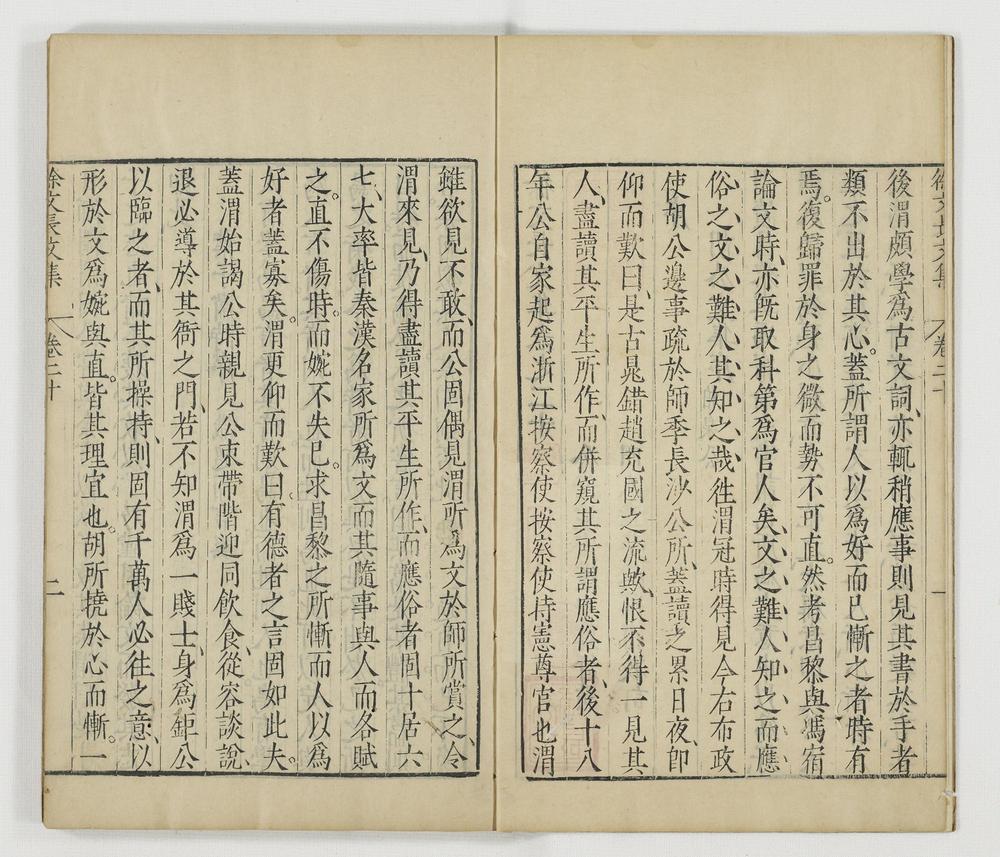 後渭頗學爲古文詞亦輒稍應事則見其書於手者
類不出於其心。蓋所謂人以爲好而已慚之者時有
焉。復歸罪於身之微而勢不可直。然考昌黎與馮宿
論文時、亦旣取科第爲官人矣、文之難人知之而應
俗之文之難人其知之哉徃渭冠時得見今右布政
使胡公邊事疏於師季長沙公所、蓋讀之累日夜、卽
仰而歎曰、是古晁錯趙充國之流歟、恨不得一見其
人、盡讀其平生所作、而併窺其所謂應俗者、後十八
年公自家起爲浙江按察使按察使持憲尊官也渭
雖欲見不敢、而公固偶見渭所爲文於師所賞之、令
渭來見、乃得盡讀其平生所作、而應俗者固十居六
七、大率皆秦漢名家所爲文而其隨事與人而各賦
之。直不傷時。而婉不失已。求昌黎之所慚而人以爲
好者蓋寡矣。渭更仰而歎曰有德者之言固如此夫。
蓋渭始謁公時親見公束帶階迎同飲食、從容談說、
退必導於其衙之門、若不知渭爲一賤士、身爲鉅公
以臨之者、而其所操持、則固有千萬人必往之意、以
形於文爲婉與直。皆其理宜也。胡所撓於心而慚。一
徐文長文集 卷二十 二